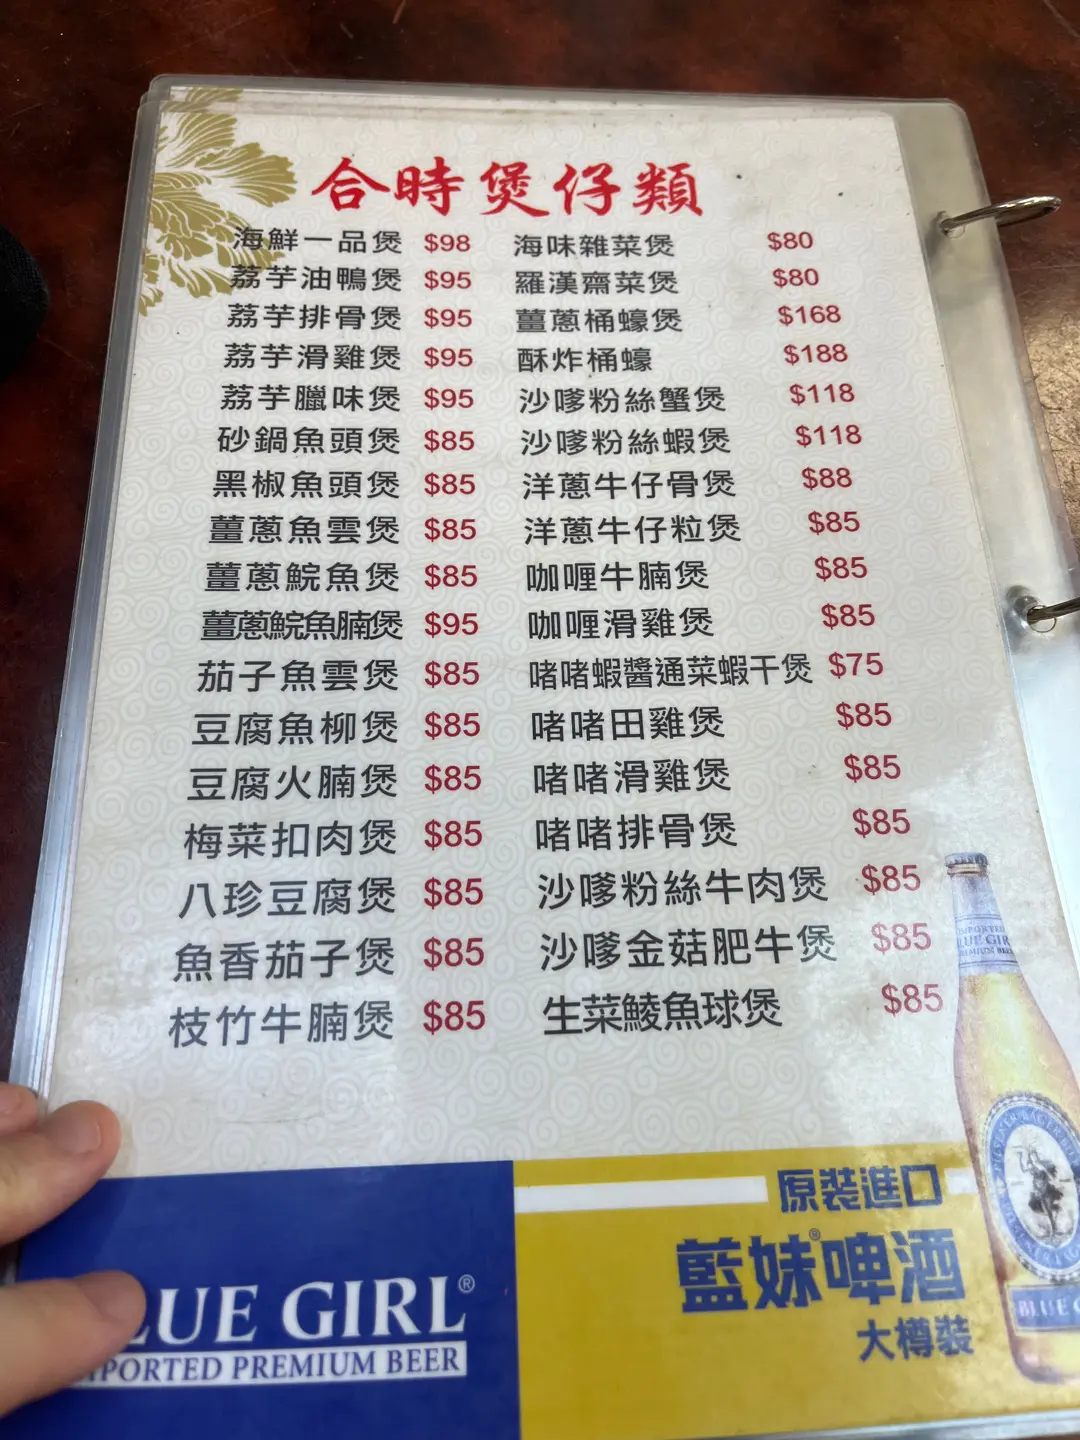 合時煲仔類
海鮮一品煲 $98
荔芋油鴨煲 $95
荔芋排骨煲 $95
荔芋滑雞煲 $95
荔芋臘味煲 $95
砂鍋魚頭煲 $85
黑椒魚頭煲 $85
薑蔥魚雲煲 $85
薑蔥鯇魚煲 $85
薑蔥鯇魚腩煲 $95
茄子魚雲煲 $85
豆腐魚柳煲 $85
豆腐火腩煲 $85
梅菜扣肉煲 $85
八珍豆腐煲 $85
魚香茄子煲 $85
枝竹牛腩煲 $85
海味雜菜煲 $80
羅漢齋菜煲 $80
薑蔥桶蠔煲 $168
酥炸桶蠔 $188
沙嗲粉絲蟹煲 $118
沙嗲粉絲蝦煲 $118
洋蔥牛仔骨煲 $88
洋蔥牛仔粒煲 $85
咖喱牛腩煲 $85
咖喱滑雞煲 $85
啫啫蝦醬通菜蝦干煲 $75
啫啫田雞煲 $85
啫啫滑雞煲 $85
啫啫排骨煲 $85
沙嗲粉絲牛肉煲 $85
沙嗲金菇肥牛煲 $85
生菜鯪魚球煲 $85
LUE GIRL®
PORTED PREMIUM BEER
原裝進口
藍妹®啤酒
大樽裝
IMPORTED
LUE GIR
BLUE G